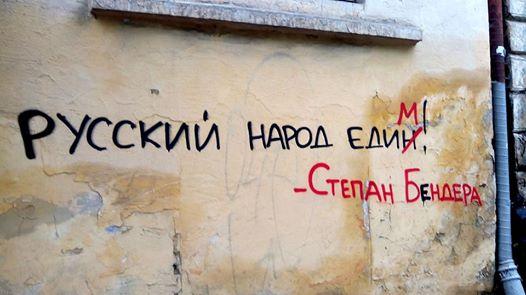 М
РУССКИЙ НАРОД ЕДИН!
–СТЕПАН БеНДЕРА